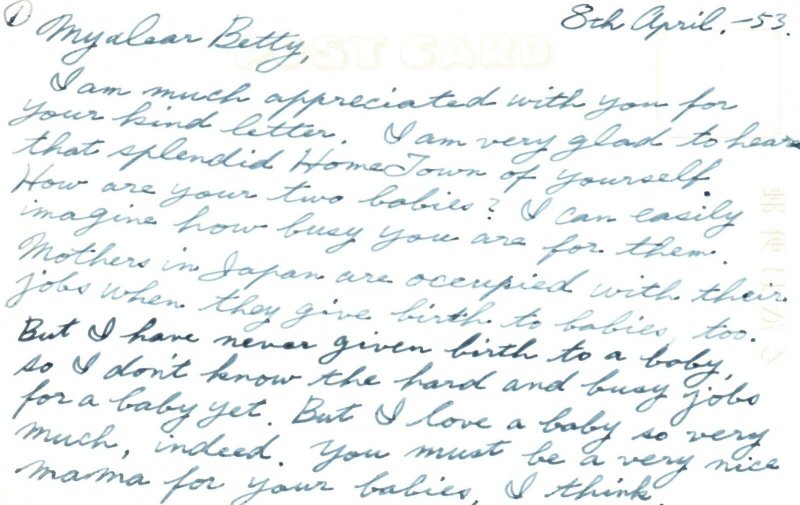 ① 8th April, -53.
My dear Betty,
POST CARD
I am much appreciated with you for
your kind letter. I am very glad to hear
that splendid Home Town of yourself.
How are your two babies? I can easily
imagine how busy you are for them.
Mothers in Japan are occupied with their
jobs when they give birth to babies, too.
But I have never given birth to a baby,
so I don't know the hard and busy jobs
for a baby yet. But I love a baby so very
much, indeed. You must be a very nice
mama for your babies, I think.
郵便はがき